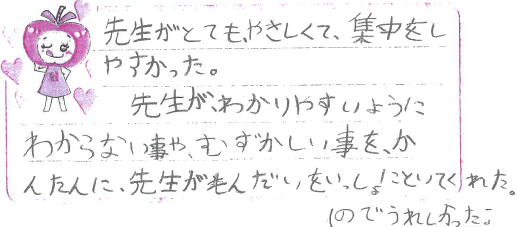 先生がとてもやさしくて、集中をし
やすかった。
先生が、わかりやすいように
わからない事や、むずかしい事を、か
んたんに、先生がもんだいをいっしょにといてくれた。
のでうれしかった。